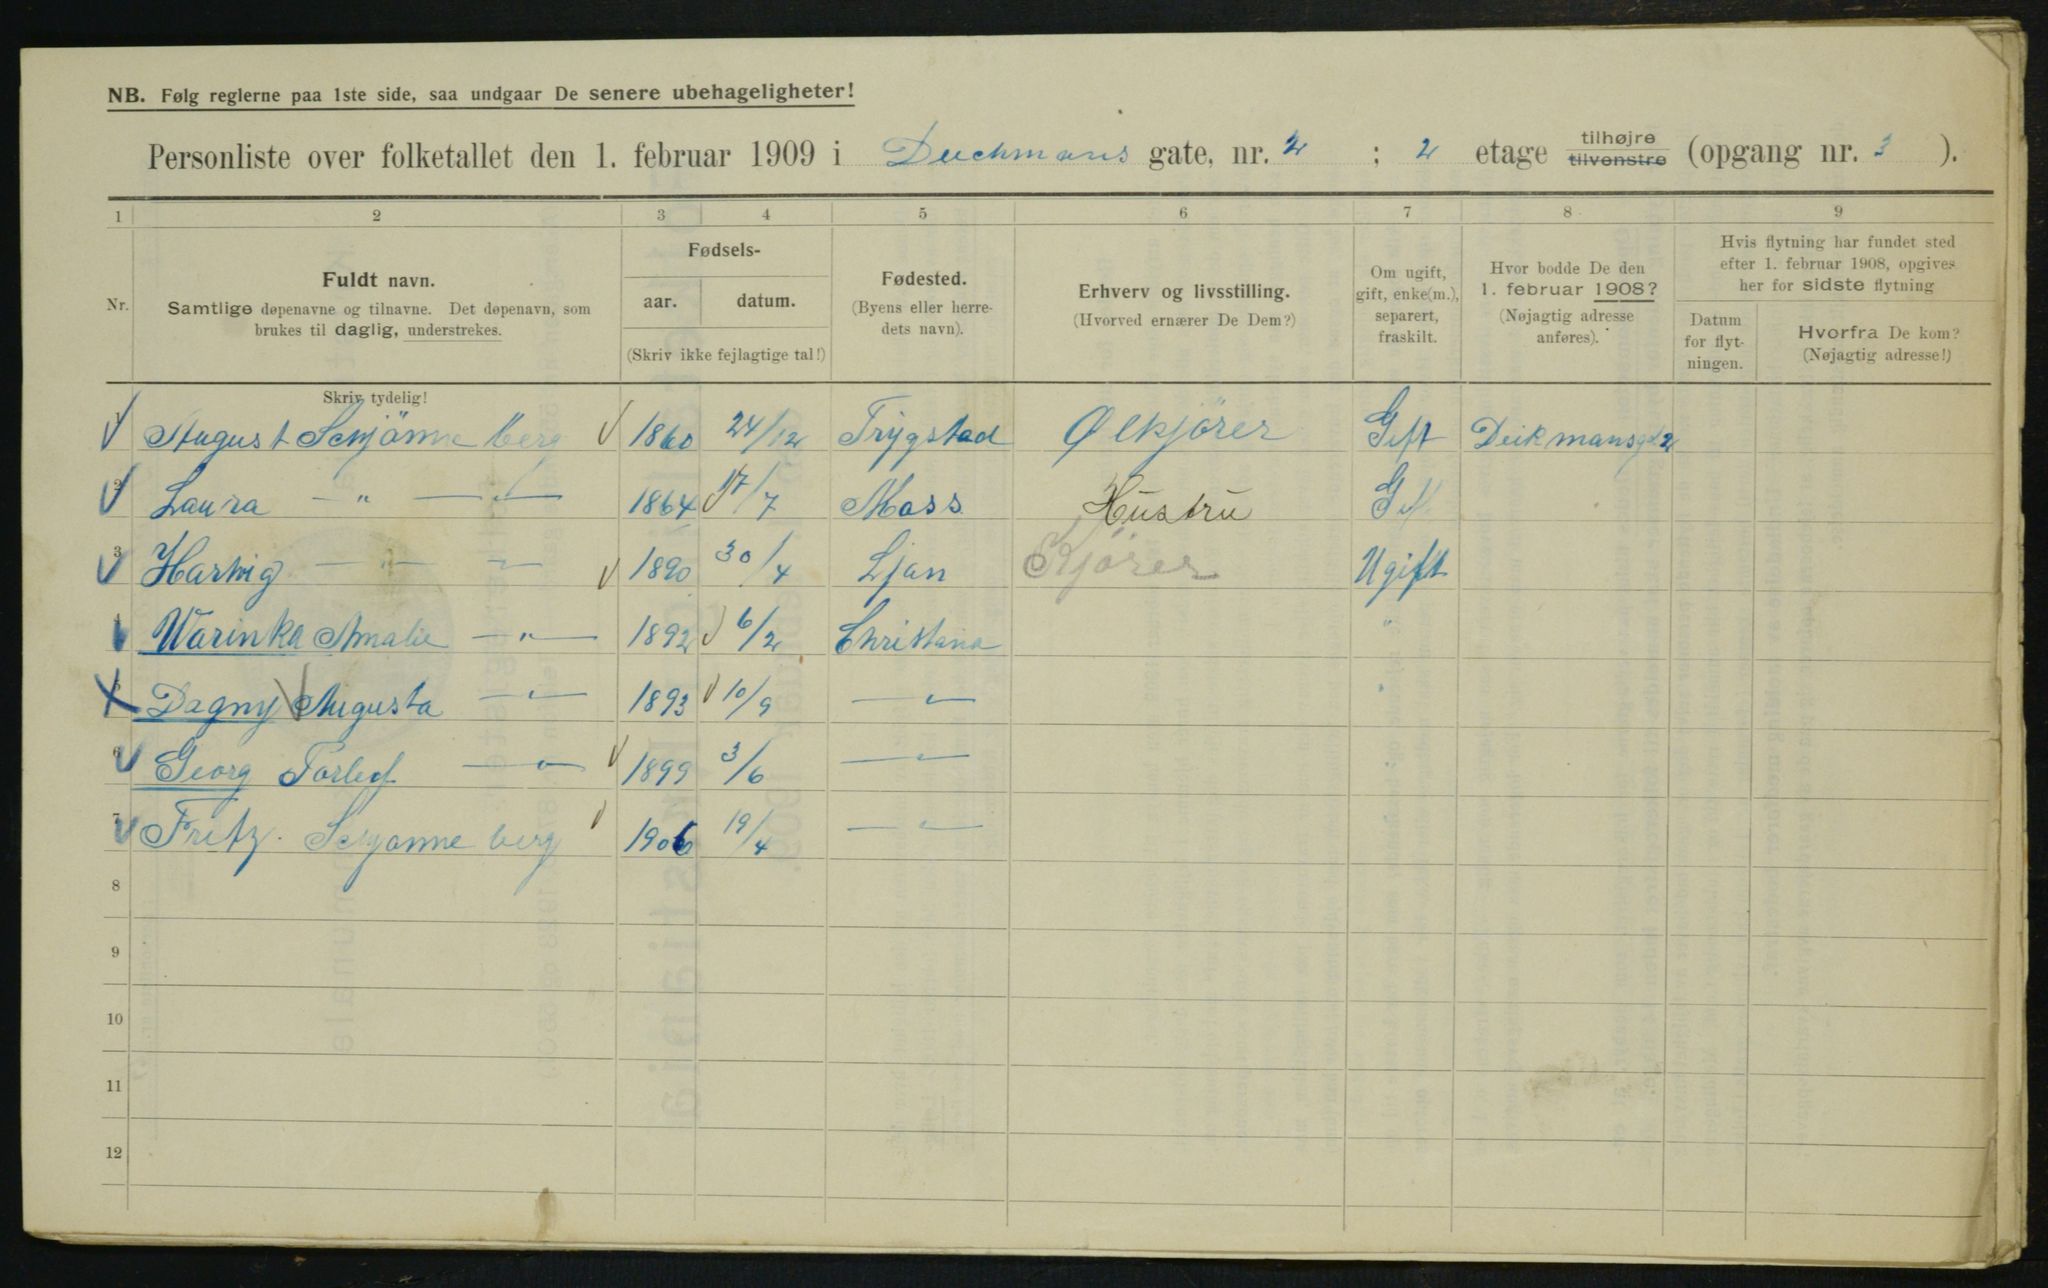 NB. Følg reglerne paa 1ste side, saa undgaar De senere ubehageligheter!
Personliste over folketallet den 1. februar 1909 i Deichmans gate, nr. 2 ; 2 etage tilhøjre tilvenstre (opgang nr. 3 ).
1 2 3 4 5 6 7 8 9
Nr.
Fuldt navn.
Samtlige døpenavne og tilnavne. Det døpenavn, som
brukes til daglig, understrekes.
Fødsels-
aar. datum.
(Skriv ikke fejlagtige tal!)
Fødested.
(Byens eller herre-
dets navn).
Erhverv og livsstilling.
(Hvorved ernærer De Dem?)
Om ugift,
gift, enke(m.),
separert,
fraskilt.
Hvor bodde De den
1. februar 1908?
(Nøjagtig adresse
anføres).
Hvis flytning har fundet sted
efter 1. februar 1908, opgives
her for sidste flytning
Datum
for flyt-
ningen.
Hvorfra De kom?
(Nøjagtig adresse!)
Skriv tydelig!
1 August Schjönne berg 1860 24/12 Trygstad Ølkjörer Gift Deikmansgd 2
2 Laura — „ — 1864 17/7 Moss Hustru Gift
3 Hartvig — „ — 1890 30/4 Ljan Kjörer Ugift
4 Warinka Amalie — „ — 1892 6/2 Christiania „
5 Dagny Augusta — „ — 1893 10/9 — „ — „
6 Georg Torlef — „ — 1899 3/6 — „ — „
7 Fritz. Schjonne berg 1906 19/4 — „ —
8
9
10
11
12